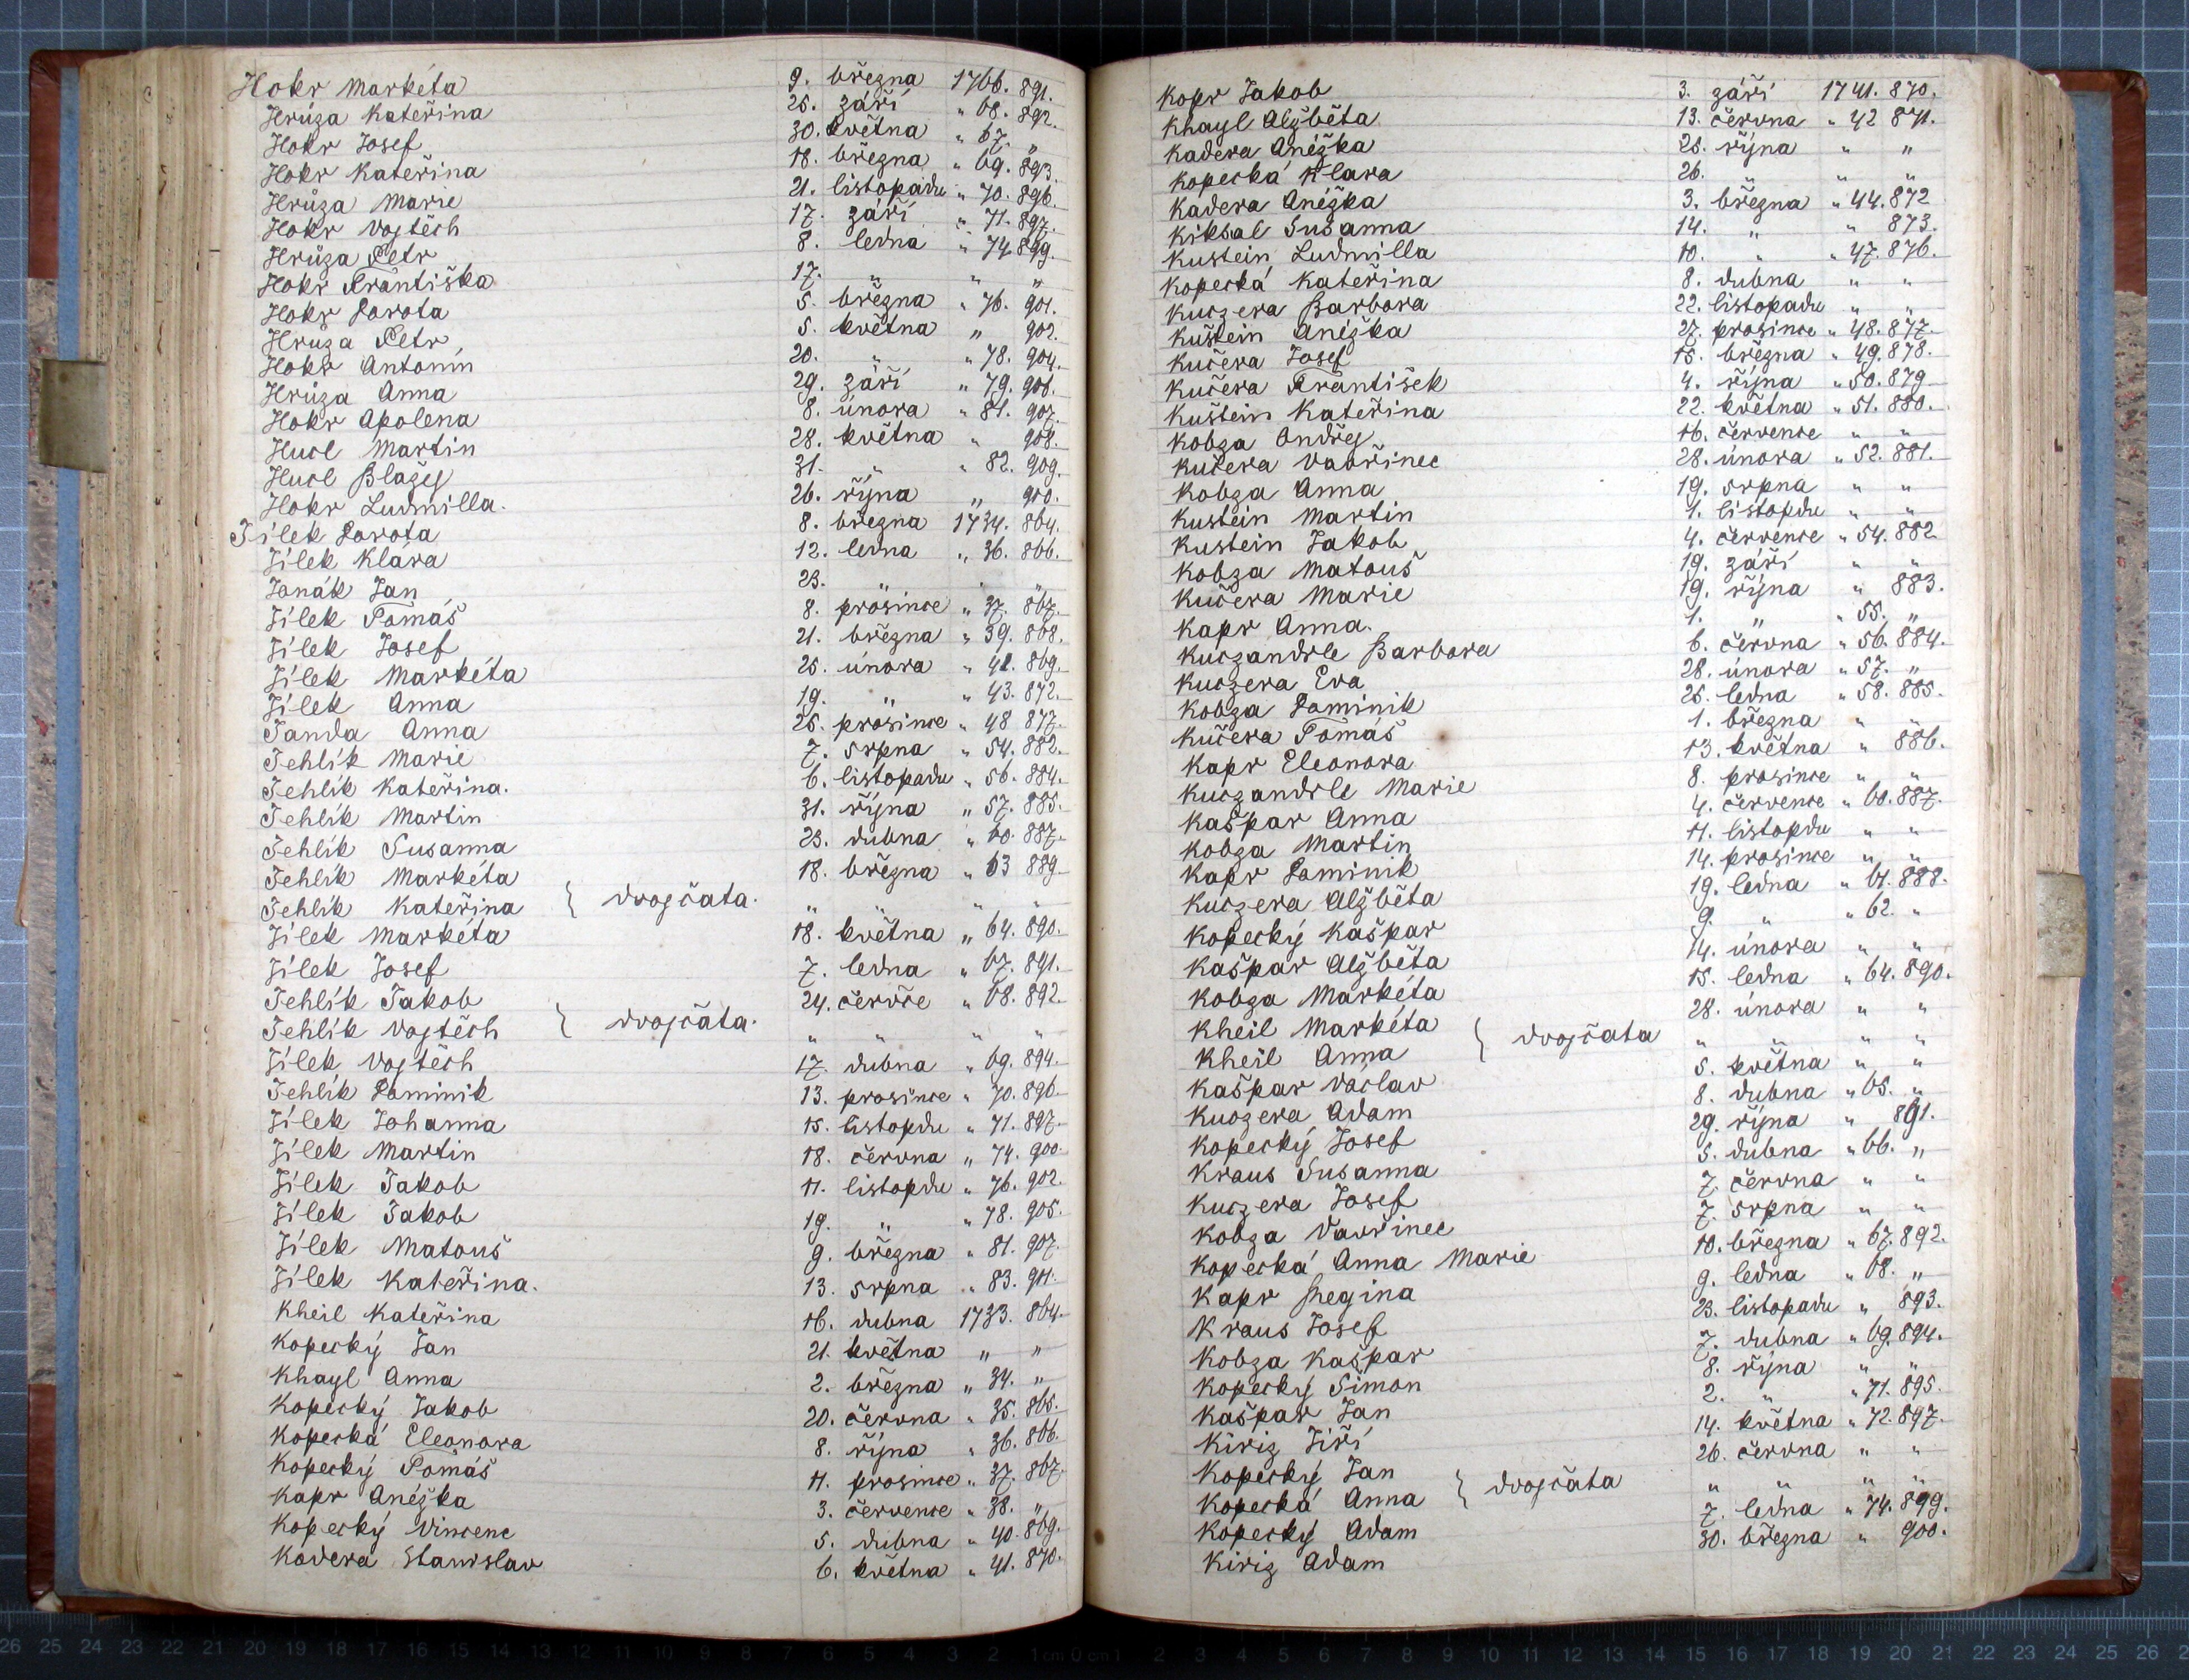 Hokr Markéta 9. března 1766. 891.
Hrůza Kateřina 25. září " 68. 892.
Hokr Josef 30. května " 67. "
Hokr Kateřina 18. března " 69. 893.
Hrůza Marie 21. listopadu " 70. 896.
Hokr Vojtěch 17. září " 71. 897.
Hrůza Petr 8. ledna " 74 899.
Hokr Františka 17. " " "
Hokr Dorota 5. března " 76. 901.
Hrůza Petr 5. května " 902.
Hokr Antonín 20. " " 78. 904.
Hrůza Anna 29. září " 79. 906.
Hokr Apolena 8. února " 81. 907.
Hucl Martin 28. května " 908.
Hucl Blažej 31. " " 82. 909.
Hokr Ludmilla. 26. října " 910.
Jílek Dorota 8. března 1734. 864.
Jílek Klára 12. ledna " 36. 866.
Janák Jan 23. " " "
Jílek Tomáš 8. prosince " 37. 867.
Jílek Josef 21. března " 39. 868.
Jílek Markéta 25. února " 41. 869.
Jílek Anna 19. " " 43. 872.
Janda Anna 25. prosince " 48 877.
Jehlík Marie 7. srpna " 54. 882.
Jehlík Kateřina. 6. listopadu " 56. 884.
Jehlík Martin 31. října " 57. 885.
Jehlík Susanna 23. dubna " 60. 887.
Jehlík Markéta 18. března " 63 889.
Jehlík Kateřina } dvojčata. " " " "
Jílek Markéta 18. května " 64. 890.
Jílek Josef 7. ledna " 67. 891.
Jehlík Jakob 24. červce " 68. 892.
Jehlík Vojtěch } dvojčata. " " " "
Jílek Vojtěch 17. dubna " 69. 894.
Jehlík Dominik 13. prosince " 70. 896.
Jílek Johanna 15. listopdu " 71. 897.
Jílek Martin 18. června " 74. 900.
Jílek Jakob 11. listopdu " 76. 902.
Jílek Jakob 19. " " 78. 905.
Jílek Matouš 9. března " 81. 907.
Jílek Kateřina. 13. srpna " 83. 911.
Kheil Kateřina 16. dubna 1733. 864.
Kopecký Jan 21. května " "
Khayl Anna 2. března " 34. "
Kopecký Jakob 20. června " 35. 865.
Kopecká Eleonora 8. října " 36. 866.
Kopecký Tomáš 11. prosince " 37. 867.
Kapr Anéžka 3. července " 38. "
Kopecký Vincenc 5. dubna " 40. 869.
Kadera Stanislav 6. května " 41. 870.
Kopr Jakob 3. září 1741. 870.
Khayl Alžběta 13. června " 42 871.
Kadera Anéžka 25. října " "
Kopecká Klara 26. " " "
Kadera Anéžka 3. března " 44. 872
Kiksal Susanna 14. " " 873.
Kustein Ludmilla 10. " " 47. 876.
Kopecká Kateřina 8. dubna " "
Kuczera Barbora 22. listopadu " "
Kuštein Anéžka 27. prosince " 48. 877.
Kučera Josef 15. března " 49. 878.
Kučera František 4. října " 50. 879
Kuštein Kateřina 22. května " 51. 880.
Kobza Ondřej 16. července " "
Kučera Vavřinec 28. února " 52. 881.
Kobza Anna 19. srpna " "
Kustein Martin 1. listopdu " "
Kustein Jakob 4. července " 54. 882
Kobza Matouš 19. září " "
Kučera Marie 19. října " 883.
Kapr Anna. 1. " " 55. "
Kuczandrle Barbora 6. června " 56. 884.
Kuczera Eva 28. února " 57. "
Kobza Dominik 25. ledna " 58. 885.
Kučera Tomáš 1. března " "
Kapr Eleonora 13. května " 886.
Kuczandrle Marie 8. prosince " "
Kašpar Anna 4. července " 60. 887.
Kobza Martin 11. listopdu " "
Kapr Dominik 14. prosince " "
Kuczera Alžběta 19. ledna " 61. 888.
Kopecký Kašpar 9. " " 62. "
Kašpar Alžběta 14. února " "
Kobza Markéta 15. ledna " 64. 890.
Kheil Markéta 28. února " "
Kheil Anna } dvojčata " " " "
Kašpar Václav 5. května " "
Kuczera Adam 8. dubna " 65. "
Kopecký Josef 29. října " 891.
Kraus Susanna 5. dubna " 66. "
Kuczera Josef 7. června " "
Kobza Vavřinec 7. srpna " "
Kopecká Anna Marie 10. března " 67. 892.
Kapr Regina 9. ledna " 68. "
Kraus Josef 23. listopadu " 893.
Kobza Kašpar 7. dubna " 69. 894.
Kopecký Šimon 8. října " "
Kašpar Jan 2. " " 71. 895.
Kiriz Jiří 14. května " 72. 897.
Kopecký Jan 26. června " "
Kopecká Anna } dvojčata " " " "
Kopecký Adam 7. ledna " 74. 899.
Kiriz Adam 30. března " 900.